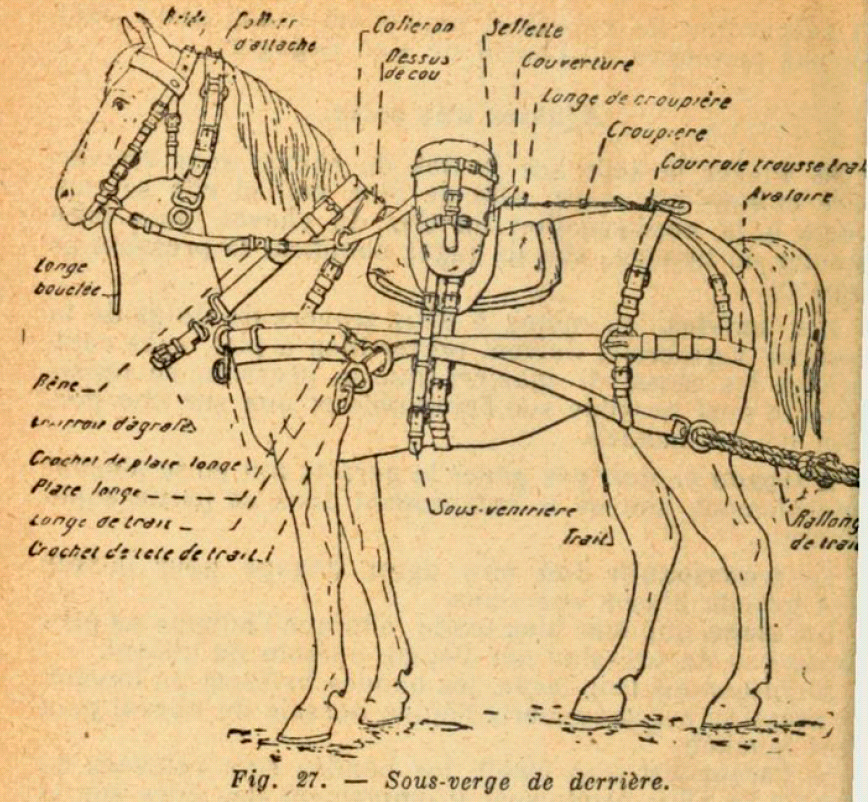 Bride
Collier
d'attache
Colleron
Sellette
Dessus
de cou
Couverture
Longe de croupière
Croupiere
Courroie trousse trai
Avaloire
Longe
bouclée
Rêne
Courroie d'agrafes
Crochet de plate longe
Plate longe
Longe de trait
Crochet de tete de trait
Sous-ventrière
Trait
Rallong
de trai
Fig. 27. — Sous-verge de derrière.